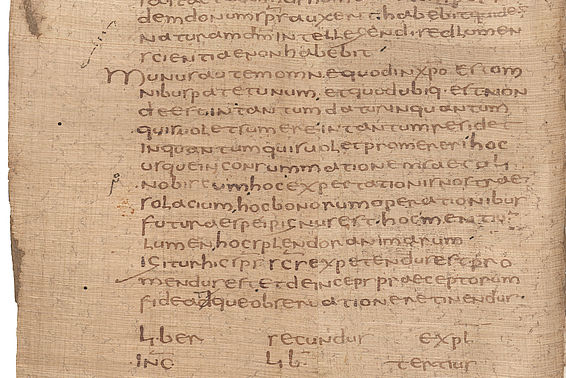 demdonumsp̄sauxerit habebitquidē
naturamdm̄intellegendi sedlumen
scientiaenonhabebit
munusautemomneequodinxp̄oestom
nibuspatetunum etquodubiq·estnon
deestintantumdaturinquantum
quisuoletsumereintantumresidet
inquantumquisuoletpromererihoc
usqueinconsummationemsaeculi
nobiscumhocexpectationisnostrae
solaciumhocbonorumoperationibus
futuraespeipignusest hocmentiū
lumen hocsplendoranimarum
igiturhicsp̄s sc̄sexpetendusestpro
mendusest etdeincepspraeceptorum
fideadqueobseruationeretinendus
liber secundus expl
inc lib tertius